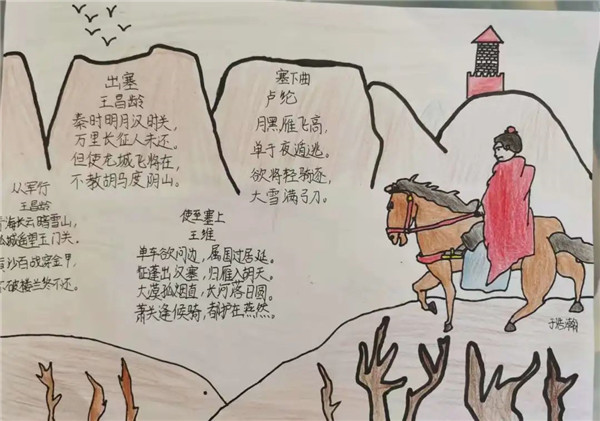 出塞
王昌龄
秦时明月汉时关,
万里长征人未还。
但使龙城飞将在,
不教胡马度阴山。
塞下曲
卢纶
月黑雁飞高,
单于夜遁逃。
欲将轻骑逐,
大雪满弓刀。
从军行
王昌龄
海长云暗雪山,
城遥望玉门关。
沙百战穿金甲,
不破楼兰终不还。
使至塞上
王维
单车欲问边,属国过居延。
征蓬出汉塞,归雁入胡天。
大漠孤烟直,长河落日圆。
萧关逢候骑,都护在燕然。
于浩瀚